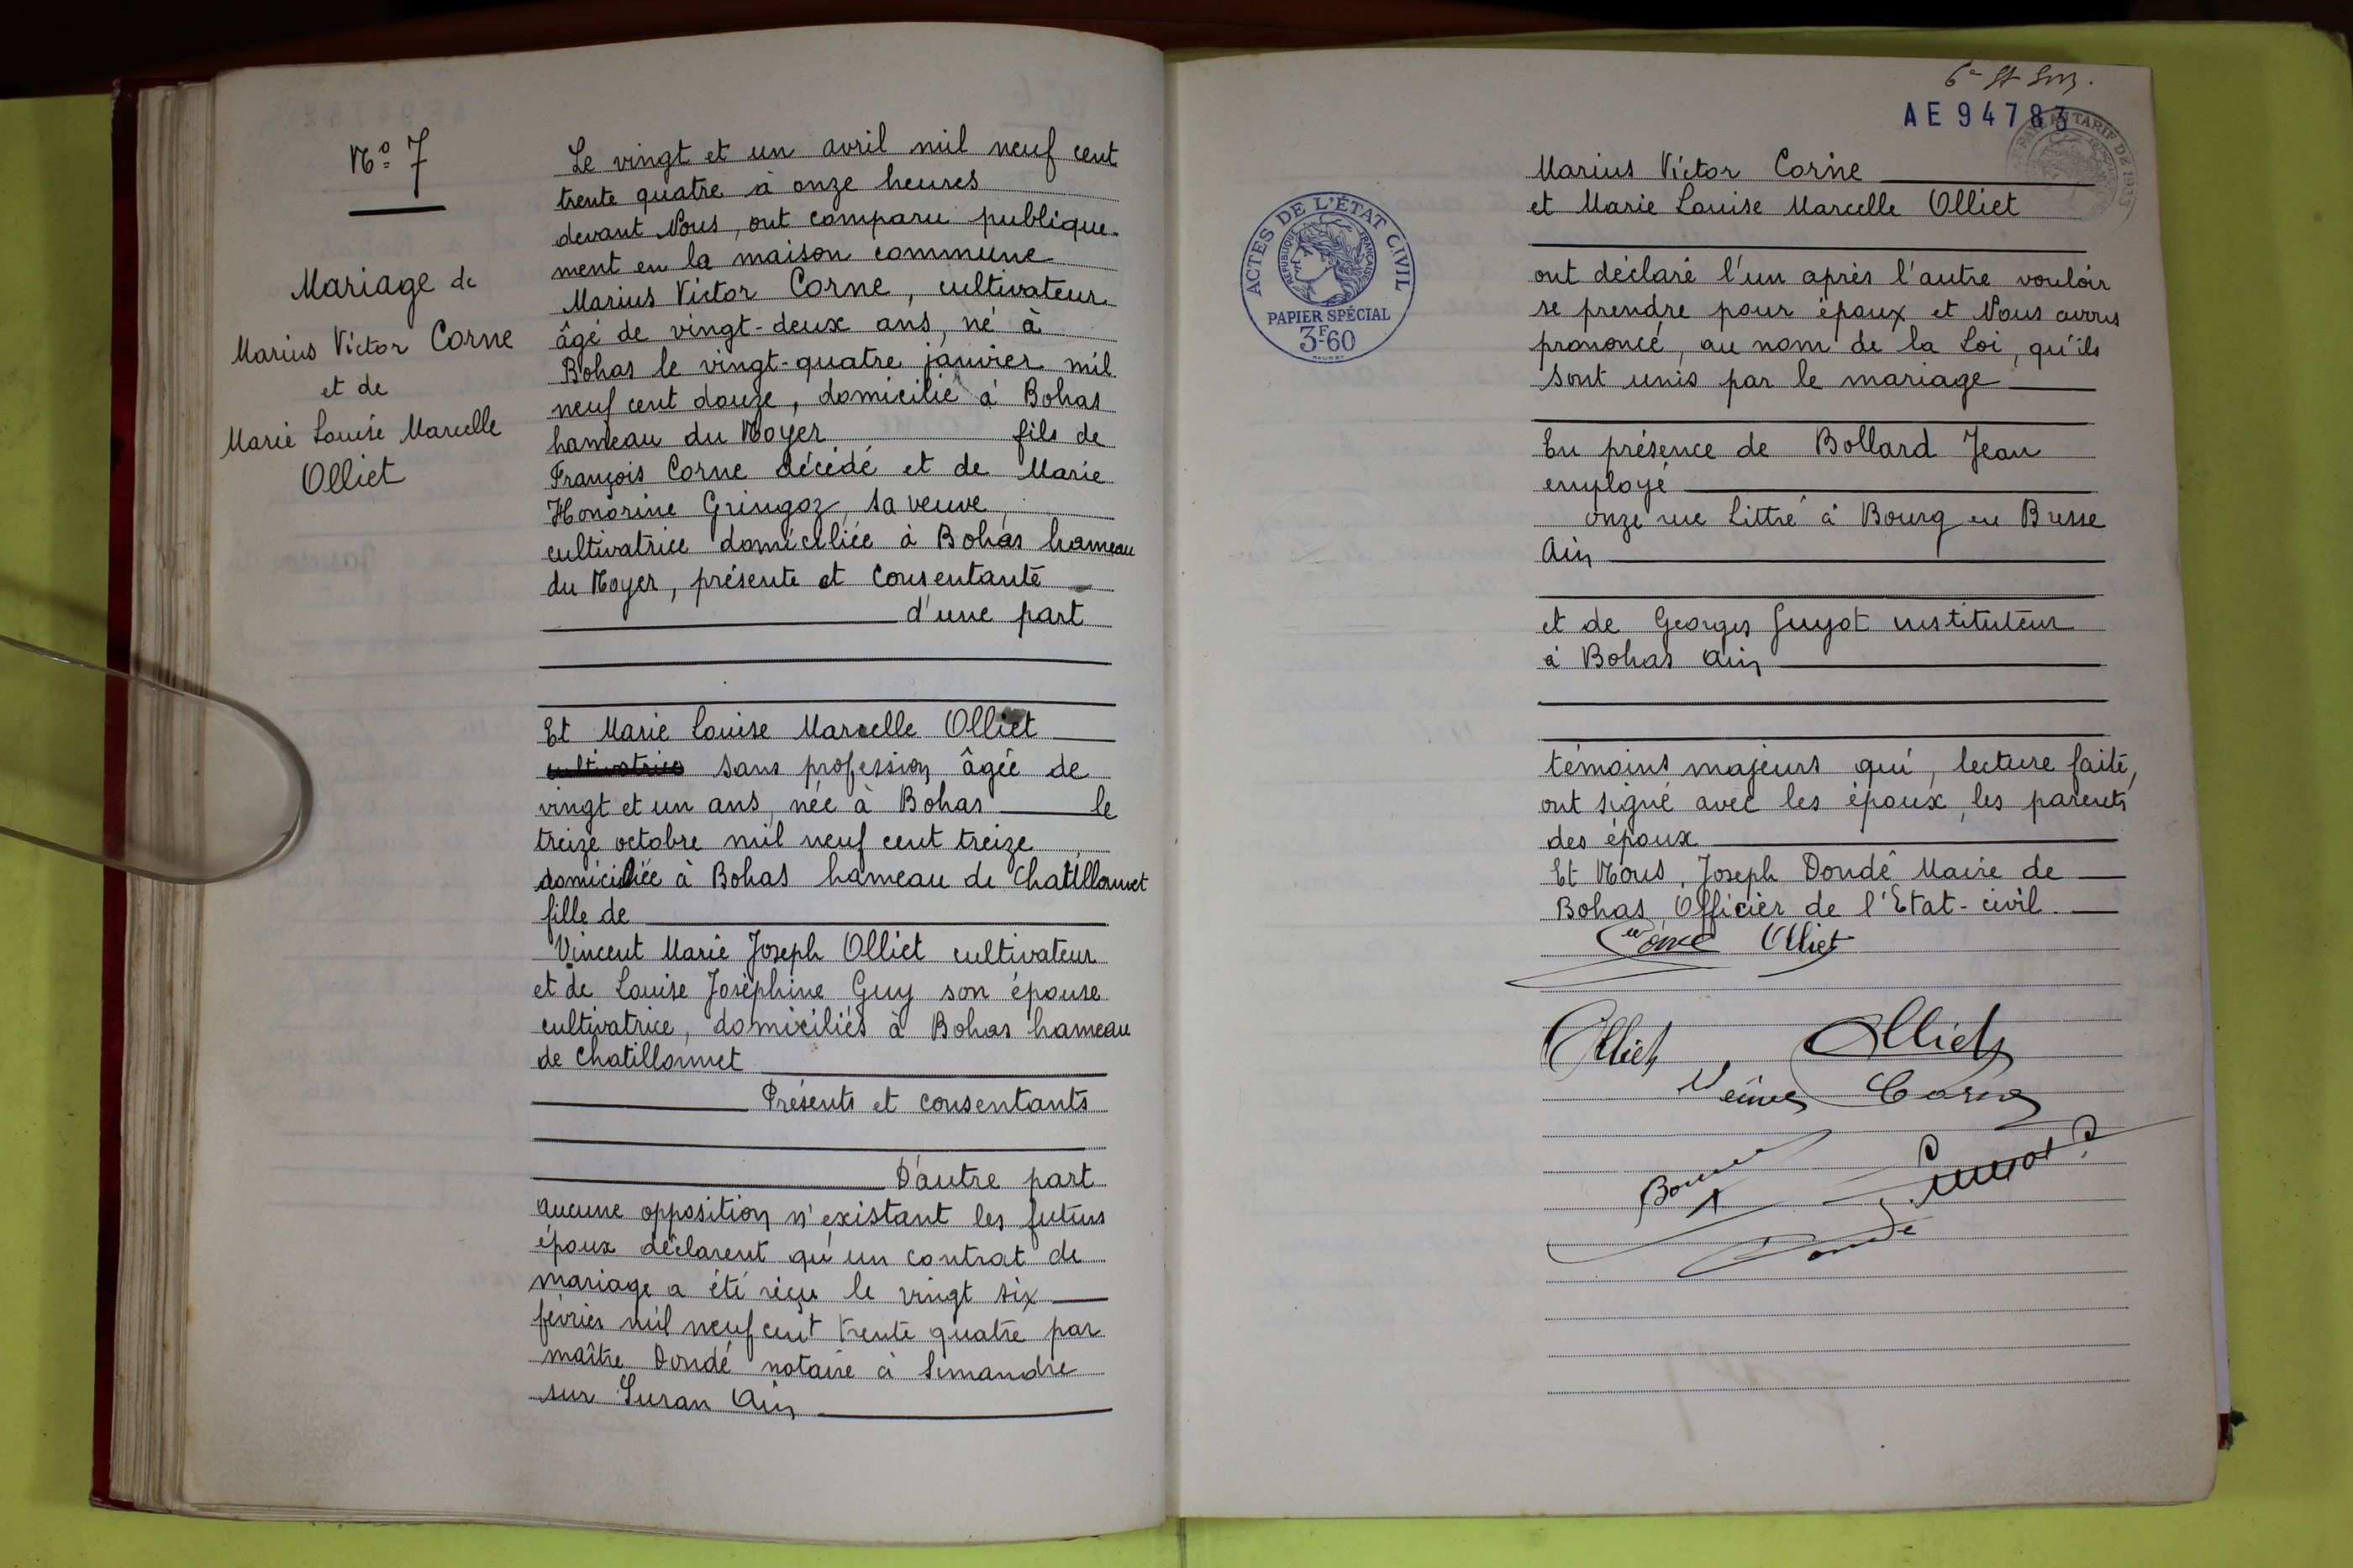 No 7
Mariage de
Marius Victor Corne
et de
Marie Louise Marcelle
Olliet
Le vingt et un avril mil neuf cent
trente quatre à onze heures
devant Nous, ont comparu publique-
ment en la maison commune
Marius Victor Corne, cultivateur
âgé de vingt-deux ans, né à
Bohas le vingt-quatre janvier mil
neuf cent douze, domicilié à Bohas
hameau du Noyer fils de
François Corne décédé et de Marie
Honorine Gringoz, sa veuve,
cultivatrice domiciliée à Bohas hameau
du Noyer, présente et consentante
d'une part
Et Marie Louise Marcelle Olliet
cultivatrice sans profession âgée de
vingt et un ans, née à Bohas le
treize octobre mil neuf cent treize
domiciliée à Bohas hameau de Chatillonnet
fille de
Vincent Marie Joseph Olliet cultivateur
et de Louise Joséphine Guy son épouse
cultivatrice, domiciliés à Bohas hameau
de Chatillonnet
Présents et consentants
D'autre part
aucune opposition n'existant les futurs
époux déclarent qu'un contrat de
mariage a été reçu le vingt six
février mil neuf cent trente quatre par
maître Dondé notaire à Simandre
sur Suran Ain
AE 94783
TARIF DE 1933
ACTES DE L'ÉTAT CIVIL
RÉPUBLIQUE FRANÇAISE
PAPIER SPÉCIAL
3F60
Marius Victor Corne
et Marie Louise Marcelle Olliet
ont déclaré l'un après l'autre vouloir
se prendre pour époux et Nous avons
prononcé, au nom de la Loi, qu'ils
sont unis par le mariage
En présence de Bollard Jean
employé
onze rue Littré à Bourg en Bresse
Ain
et de Georges Guyot instituteur
à Bohas Ain
témoins majeurs qui, lecture faite,
ont signé avec les époux, les parents
des époux
Et Nous, Joseph Dondé Maire de
Bohas, Officier de l'Etat-civil.
Corne Olliet
Olliet Olliet
Veuve Corne
Guyot
Dondé